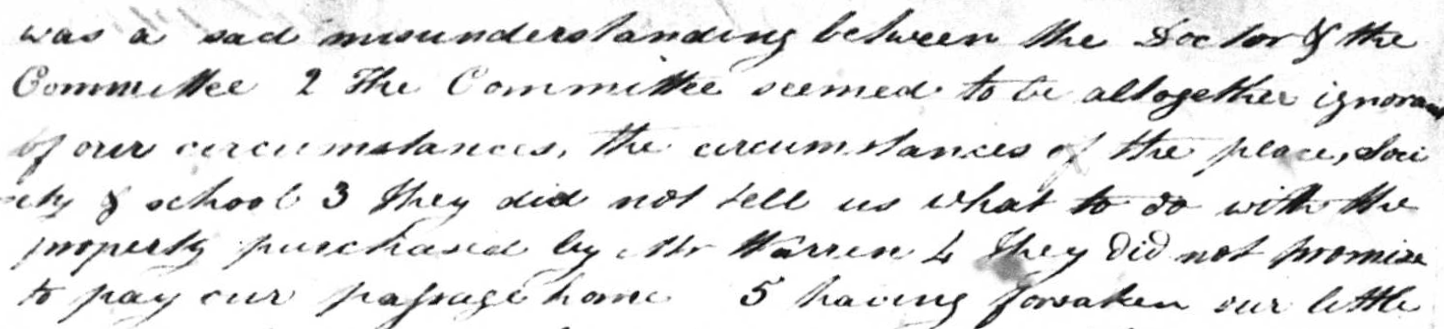 was a sad misunderstanding between the Doctor & the
Committee 2 The Committee seemed to be altogether ignorant
of our circumstances, the circumstances of the place, Soci
ety & school 3 They did not tell us what to do with the
property purchased by Mr Warren 4 They did not promise
to pay our passage home 5 having forsaken our little